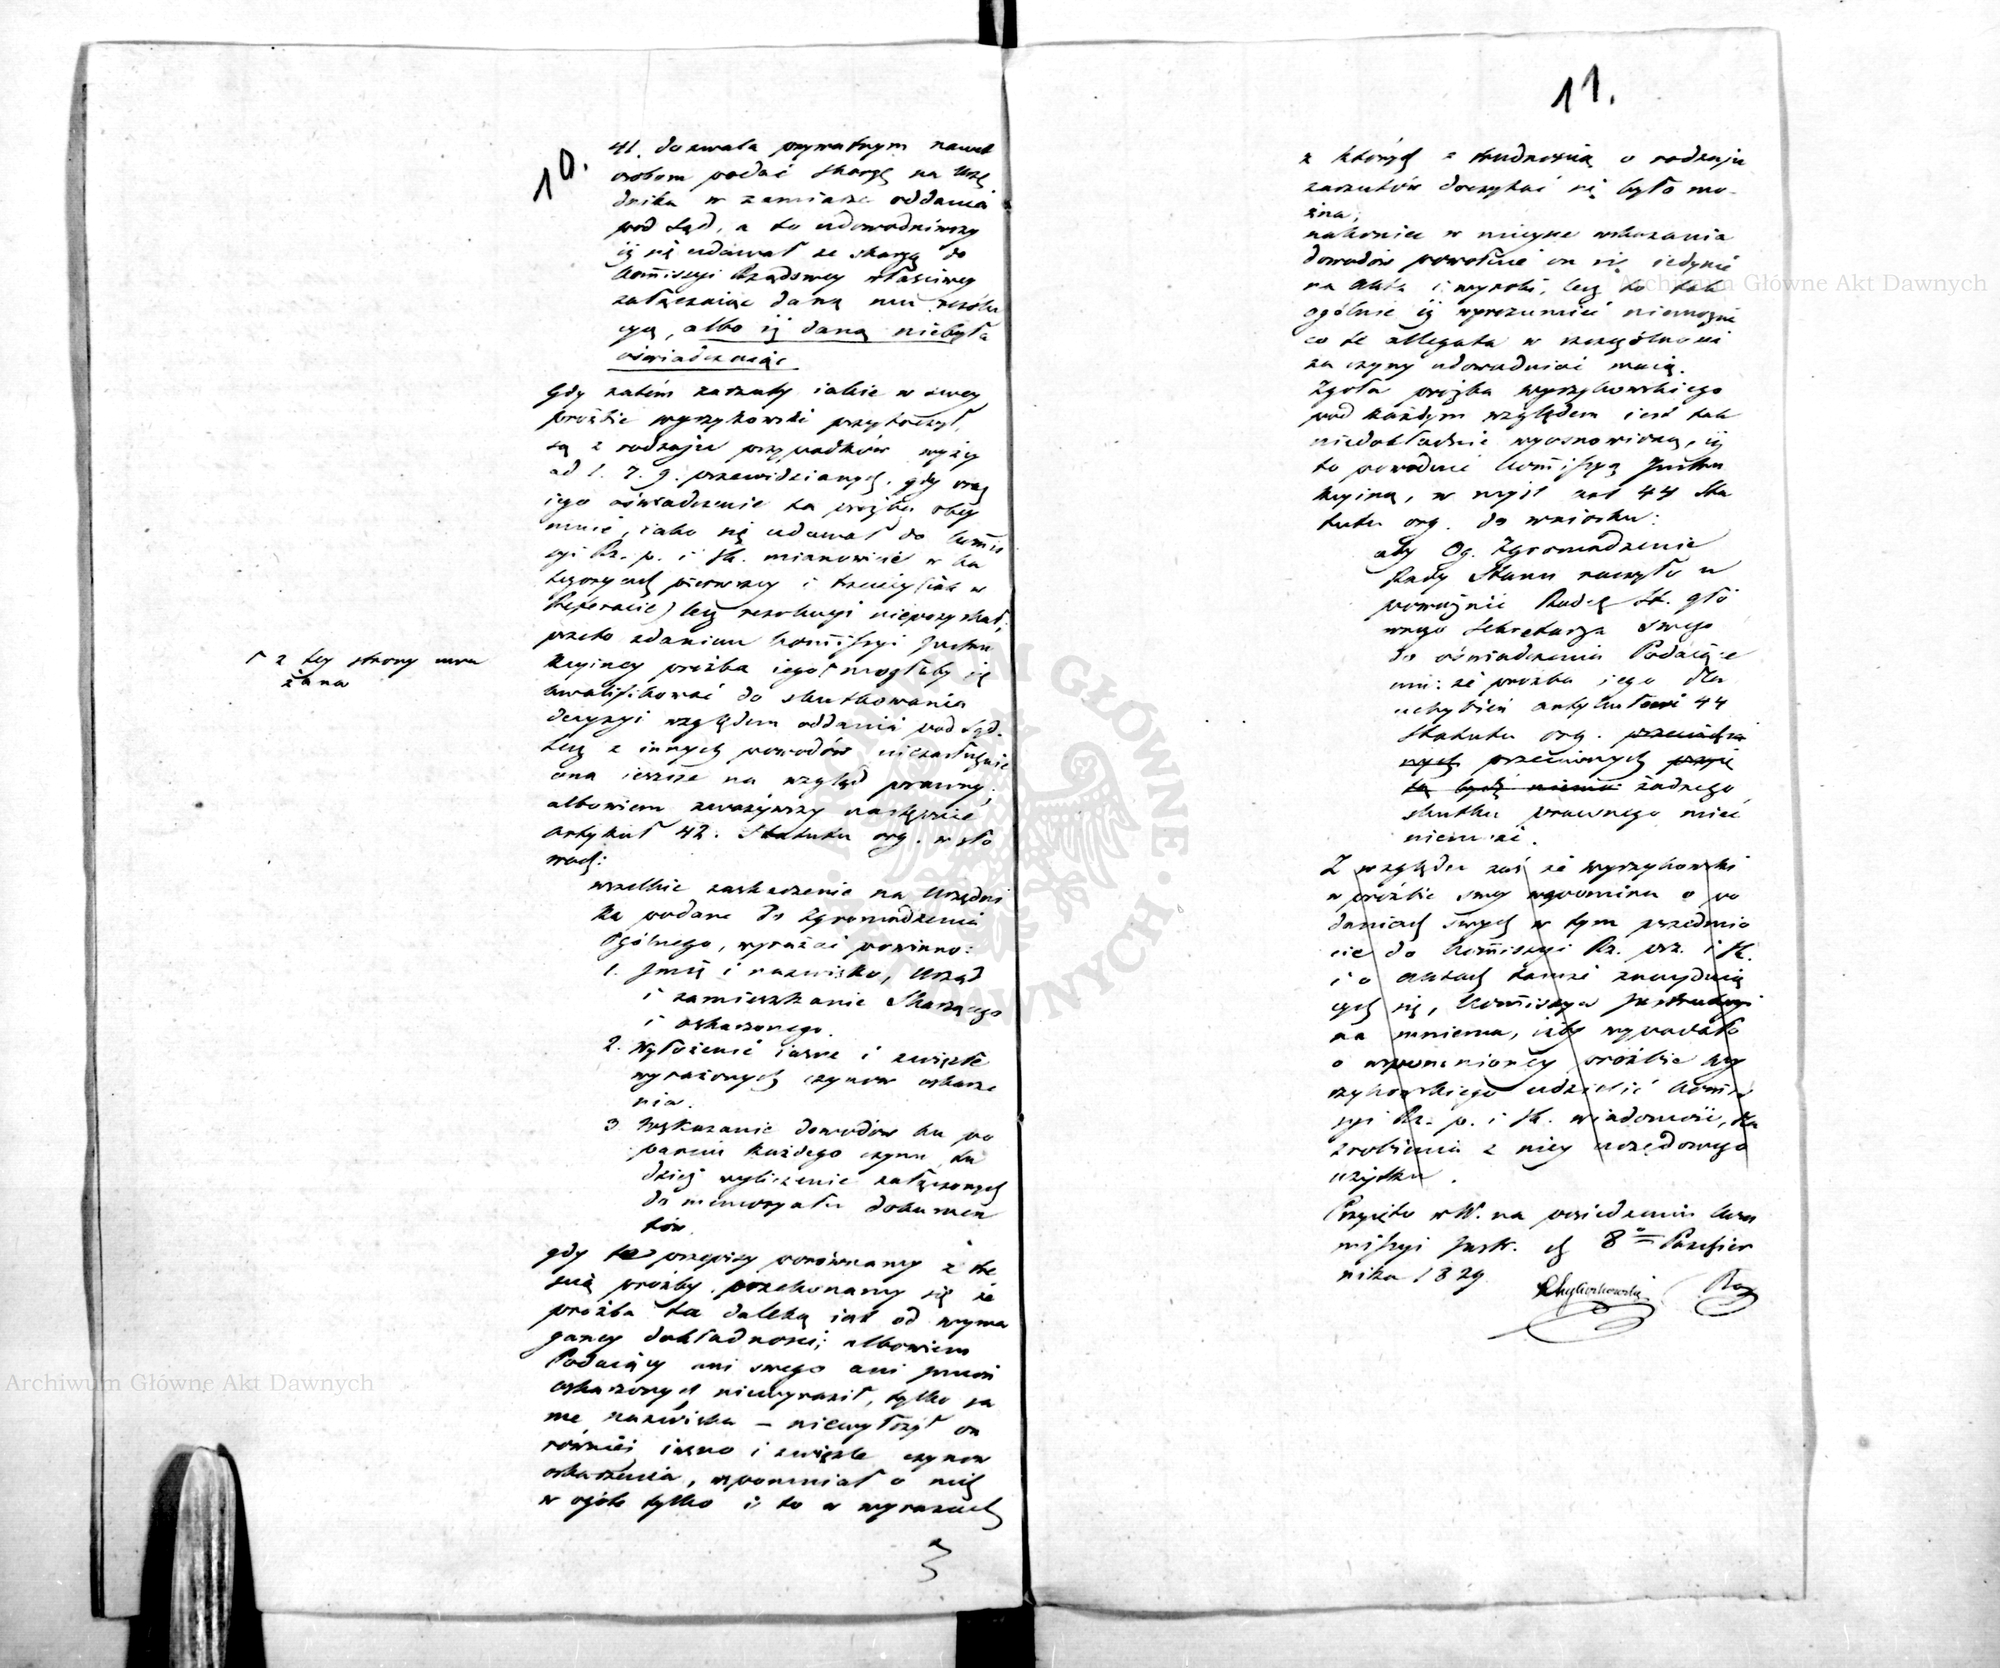 10.
41. dozwala prywatnym nawet
osobom podać skargę na Urzę
dnika w zamiarze oddania
pod Sąd, a to udowodniwszy
iż się udawał ze skargą do
Kommissyi Rządowey właściwey
załączaiąc daną mu rezolu
cyą, albo iż daną niebyła
oświadczaiąc
Gdy zatém zarzuty iakie w swey
proźbie Wyszykowski przytoczył,
są z rodzaiu przypadków wyżey
ad 1. 7. 9. przewidzianych, gdy oraz
iego oświadczenie ta proźba obey
muie, iako się udawał do Kommis
syi Rz. p. i Sk. mianowicie w ka
tegoryach pierwszey i trzeciey (iak w
Referacie) lecz rezolucyi niepozyskał;
przeto zdaniem Kommissyi Instru
kcyiney proźba iego Γ mogłaby się
kwalifikować do skutkowania
decyzyi względem oddania pod Sąd.
Γ z tey strony uwa
żana
lecz z innych powodów niezasługuie
ona ieszcze na wzgląd prawny;
albowiem zważywszy następnie
artykuł 42. Statutu org. w sło
wach:
wszelkie zaskarżenie na Urzędni
ka podane do Zgromadzenia
Ogólnego, wyrażać powinno:
1. Imię i nazwisko, Urząd
i zamieszkanie Skarżącego
i oskarżonego.
2. Wyłożenie iasne i zwięzłe
wyrażonych czynów oskarże
nia.
3. Wskazanie dowodów ku po
parciu każdego czynu, tu
dzież wyliczenie załączonych
do memoryału dokumen
tów.
gdy te przepisy porównamy z tre
ścią proźby, przekonamy się że
proźba ta daleką iest od wyma
ganey dokładności; albowiem
Podaiący ani swego ani imion
oskarżonych niewyraził, tylko sa
me nazwiska – niewyłożył on
również iasno i zwięzle czynów
oskarżenia, wspomniał o nich
w ogóle tylko i to w wyrazach
3
11.
z których z trudnością o rodzaju
zarzutów doczytać się było mo-
żna;
nakoniec w mieysce wskazania
dowodów powołuie on się iedynie
na Akta i wyroki, lecz to tak
ogólnie iż wyrozumieć niemożna
co te allegata w szczególności
za czyny udowadniać maią.
Zgoła proźba Wyszykowskiego
pod każdym względem iest tak
niedokładnie wypracowaną, iż
to powoduie Kommissyą Instru
kcyiną, w myśl art 44 Sta
tutu org. do wniosku:
aby Og. Zgromadzenie
Rady Stanu raczyło u
poważnić Radcę St. głó
wnego Sekretarza swego
do oświadczenia Podaiące
mu: że proźba iego dla
uchybień artykułowi 44
Statutu org.
przeciwnych
żadnego
skutku prawnego mieć
niemoże.
Z względu zaś że Wyszykowski
w proźbie swey wspomina o po
daniach swych w tym przedmio
cie do Kommissyi Rz. prz. i Sk.
i o aktach tamże znayduią
cych się, Kommissya Instrukcyi
na mniema, iżby wypadało
o wspomnioney proźbie Wy
szykowskiego udzielić Kommis
syi Rz. p. i Sk. wiadomość, dla
zrobienia z niey urzędowego
użytku.
Przyięto w W. na posiedzeniu Kom
missyi Instr. d. 8 Paździer
nika 1829.